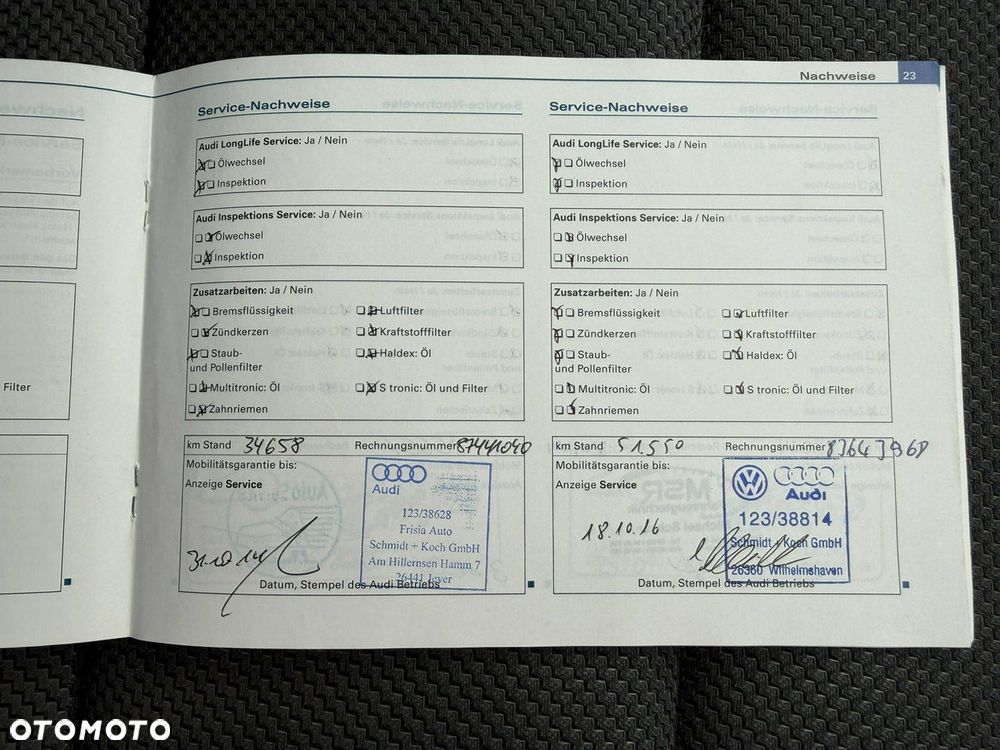 Nachweise 23
Service-Nachweise
Audi LongLife Service: Ja / Nein
Ölwechsel
Inspektion
Audi Inspektions Service: Ja / Nein
Ölwechsel
Inspektion
Zusatzarbeiten: Ja / Nein
Bremsflüssigkeit
Luftfilter
Zündkerzen
Kraftstofffilter
Staub-
und Pollenfilter
Haldex: Öl
Multitronic: Öl
S tronic: Öl und Filter
Zahnriemen
km Stand 34658 Rechnungsnummer 87441040
Mobilitätsgarantie bis:
Anzeige Service
Audi
123/38628
Frisia Auto
Schmidt + Koch GmbH
Am Hillernsen Hamm 7
26441 Jever
Datum, Stempel des Audi Betriebs
Service-Nachweise
Audi LongLife Service: Ja / Nein
Ölwechsel
Inspektion
Audi Inspektions Service: Ja / Nein
Ölwechsel
Inspektion
Zusatzarbeiten: Ja / Nein
Bremsflüssigkeit
Luftfilter
Zündkerzen
Kraftstofffilter
Staub-
und Pollenfilter
Haldex: Öl
Multitronic: Öl
S tronic: Öl und Filter
Zahnriemen
km Stand 51.550 Rechnungsnummer
Mobilitätsgarantie bis:
Anzeige Service
Audi
123/38814
18.10.16
Schmidt + Koch GmbH
26360 Wilhelmshaven
Datum, Stempel des Audi Betriebs
Filter
OTOMOTO